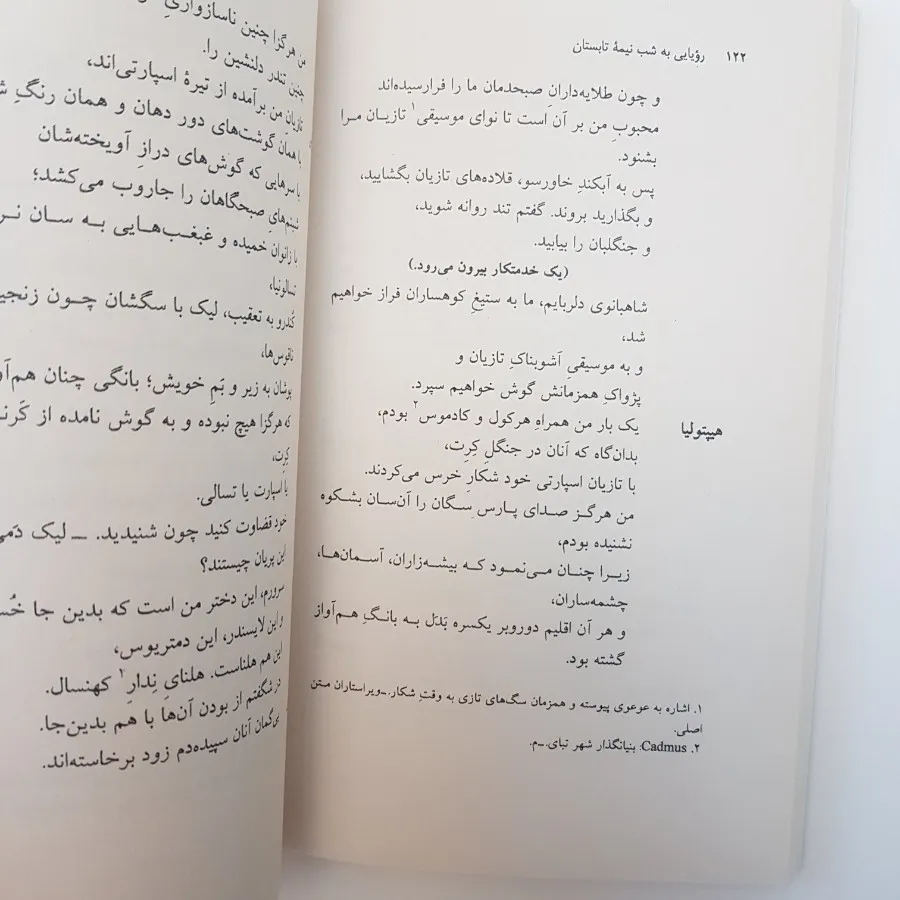 ۱۲۲ رؤیایی به شب نیمهٔ تابستان
و چون طلایه‌دارانِ صبحدمان ما را فرارسیده‌اند
محبوبِ من بر آن است تا نوای موسیقی۱ تازیان مرا
بشنود.
پس به آبکندِ خاورسو، قلاده‌های تازیان بگشایید،
و بگذارید بروند. گفتم تند روانه شوید،
و جنگلبان را بیابید.
(یک خدمتکار بیرون می‌رود.)
شاهبانوی دلربایم، ما به ستیغِ کوهساران فراز خواهیم
شد،
و به موسیقیِ آشوبناکِ تازیان و
پژواکِ همزمانش گوش خواهیم سپرد.
هیپتولیا یک بار من همراهِ هرکول و کادموس۲ بودم،
بدان‌گاه که آنان در جنگلِ کِرِت،
با تازیان اسپارتی خود شکارِ خرس می‌کردند.
من هرگز صدای پارسِ سگان را آن‌سان بشکوه
نشنیده بودم،
زیرا چنان می‌نمود که بیشه‌زاران، آسمان‌ها،
چشمه‌ساران،
و هر آن اقلیم دوروبر یکسره بَدَل به بانگِ هم‌آواز
گشته بود.
۱. اشاره به عوعوی پیوسته و همزمان سگ‌های تازی به وقتِ شکار.ــ‌ویراستاران متن
اصلی.
۲. Cadmus: بنیانگذار شهر تبای.ــ‌م.
من هرگزا چنین ناسازواریِ
چنین تندر دلنشین را.
تازیانِ من برآمده از تیرهٔ اسپارتی‌اند،
با همان گوشت‌های دور دهان و همان رنگِ
با سرهایی که گوش‌های درازِ آویخته‌شان
شبنم‌های صبحگاهان را جاروب می‌کشد؛
با زانوان خمیده و غبغب‌هایی به سان
تسالونیا،
کُندرو به تعقیب، لیک با سگشان چون
ناقوس‌ها،
بوشان به زیر و بَمِ خویش؛ بانگی چنان
که هرگزا هیچ نبوده و به گوش نامده از
کِرِت،
با اسپارت یا تسالی.
خود قضاوت کنید چون شنیدید. ــ لیک
این پریان چیستند؟
سرورم، این دختر من است که بدین جا
و این لایسندر، این دمتریوس،
این هم هلناست. هلنایِ نِدارِ۲ کهنسال.
در شگفتم از بودن آن‌ها با هم بدین‌جا.
بی‌گمان آنان سپیده‌دم زود برخاسته‌اند.